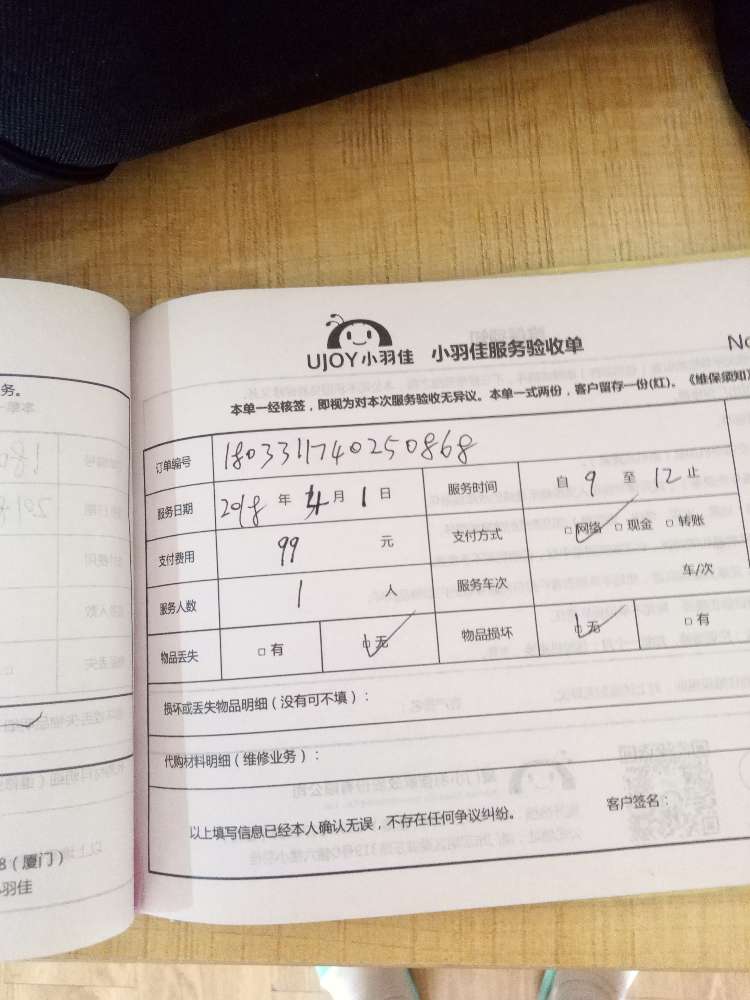 UJOY小羽佳 小羽佳服务验收单
No
本单一经核签，即视为对本次服务验收无异议。本单一式两份，客户留存一份(红)。《维保须知》
订单编号 1803311740250868
服务日期 2018 年 4 月 1 日 服务时间 自 9 至 12 止
支付费用 99 元 支付方式 □网络 □现金 □转账
服务人数 1 人 服务车次 车/次
物品丢失 □有 □无 物品损坏 □无 □有
损坏或丢失物品明细（没有可不填）：
代购材料明细（维修业务）：
以上填写信息已经本人确认无误，不存在任何争议纠纷。 客户签名：
务。
8（厦门）
羽佳